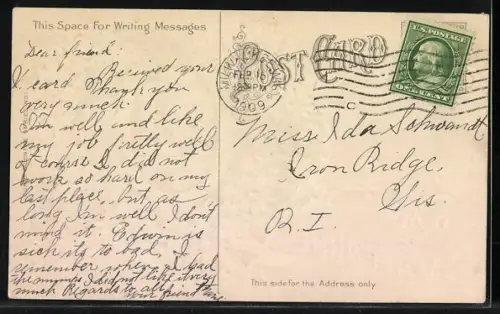 This Space For Writing Messages
POST CARD
MILWAUKEE
FEB 16
PM
1909
U.S. POSTAGE
ONE CENT
Dear friend:
Recived your
card thank you
very much.
I'm well and like
my job prettly well
of course I did not
work so hard on my
last place, but as
long I'm well I don't
mind it. Edwin is
sick its to bad. I
remember when I had
the mumps I did not like it very
much. Regards to all,
your friend
Miss Ida Schwandt
Iron Ridge,
Wis.
R. I.
This side for the Address only